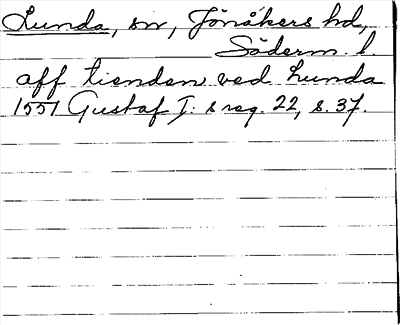 Lunda, sn, Jönåkers hd,
Söderm. l
aff tienden ved Lunda
1551 Gustaf I: s reg. 22, s. 37.